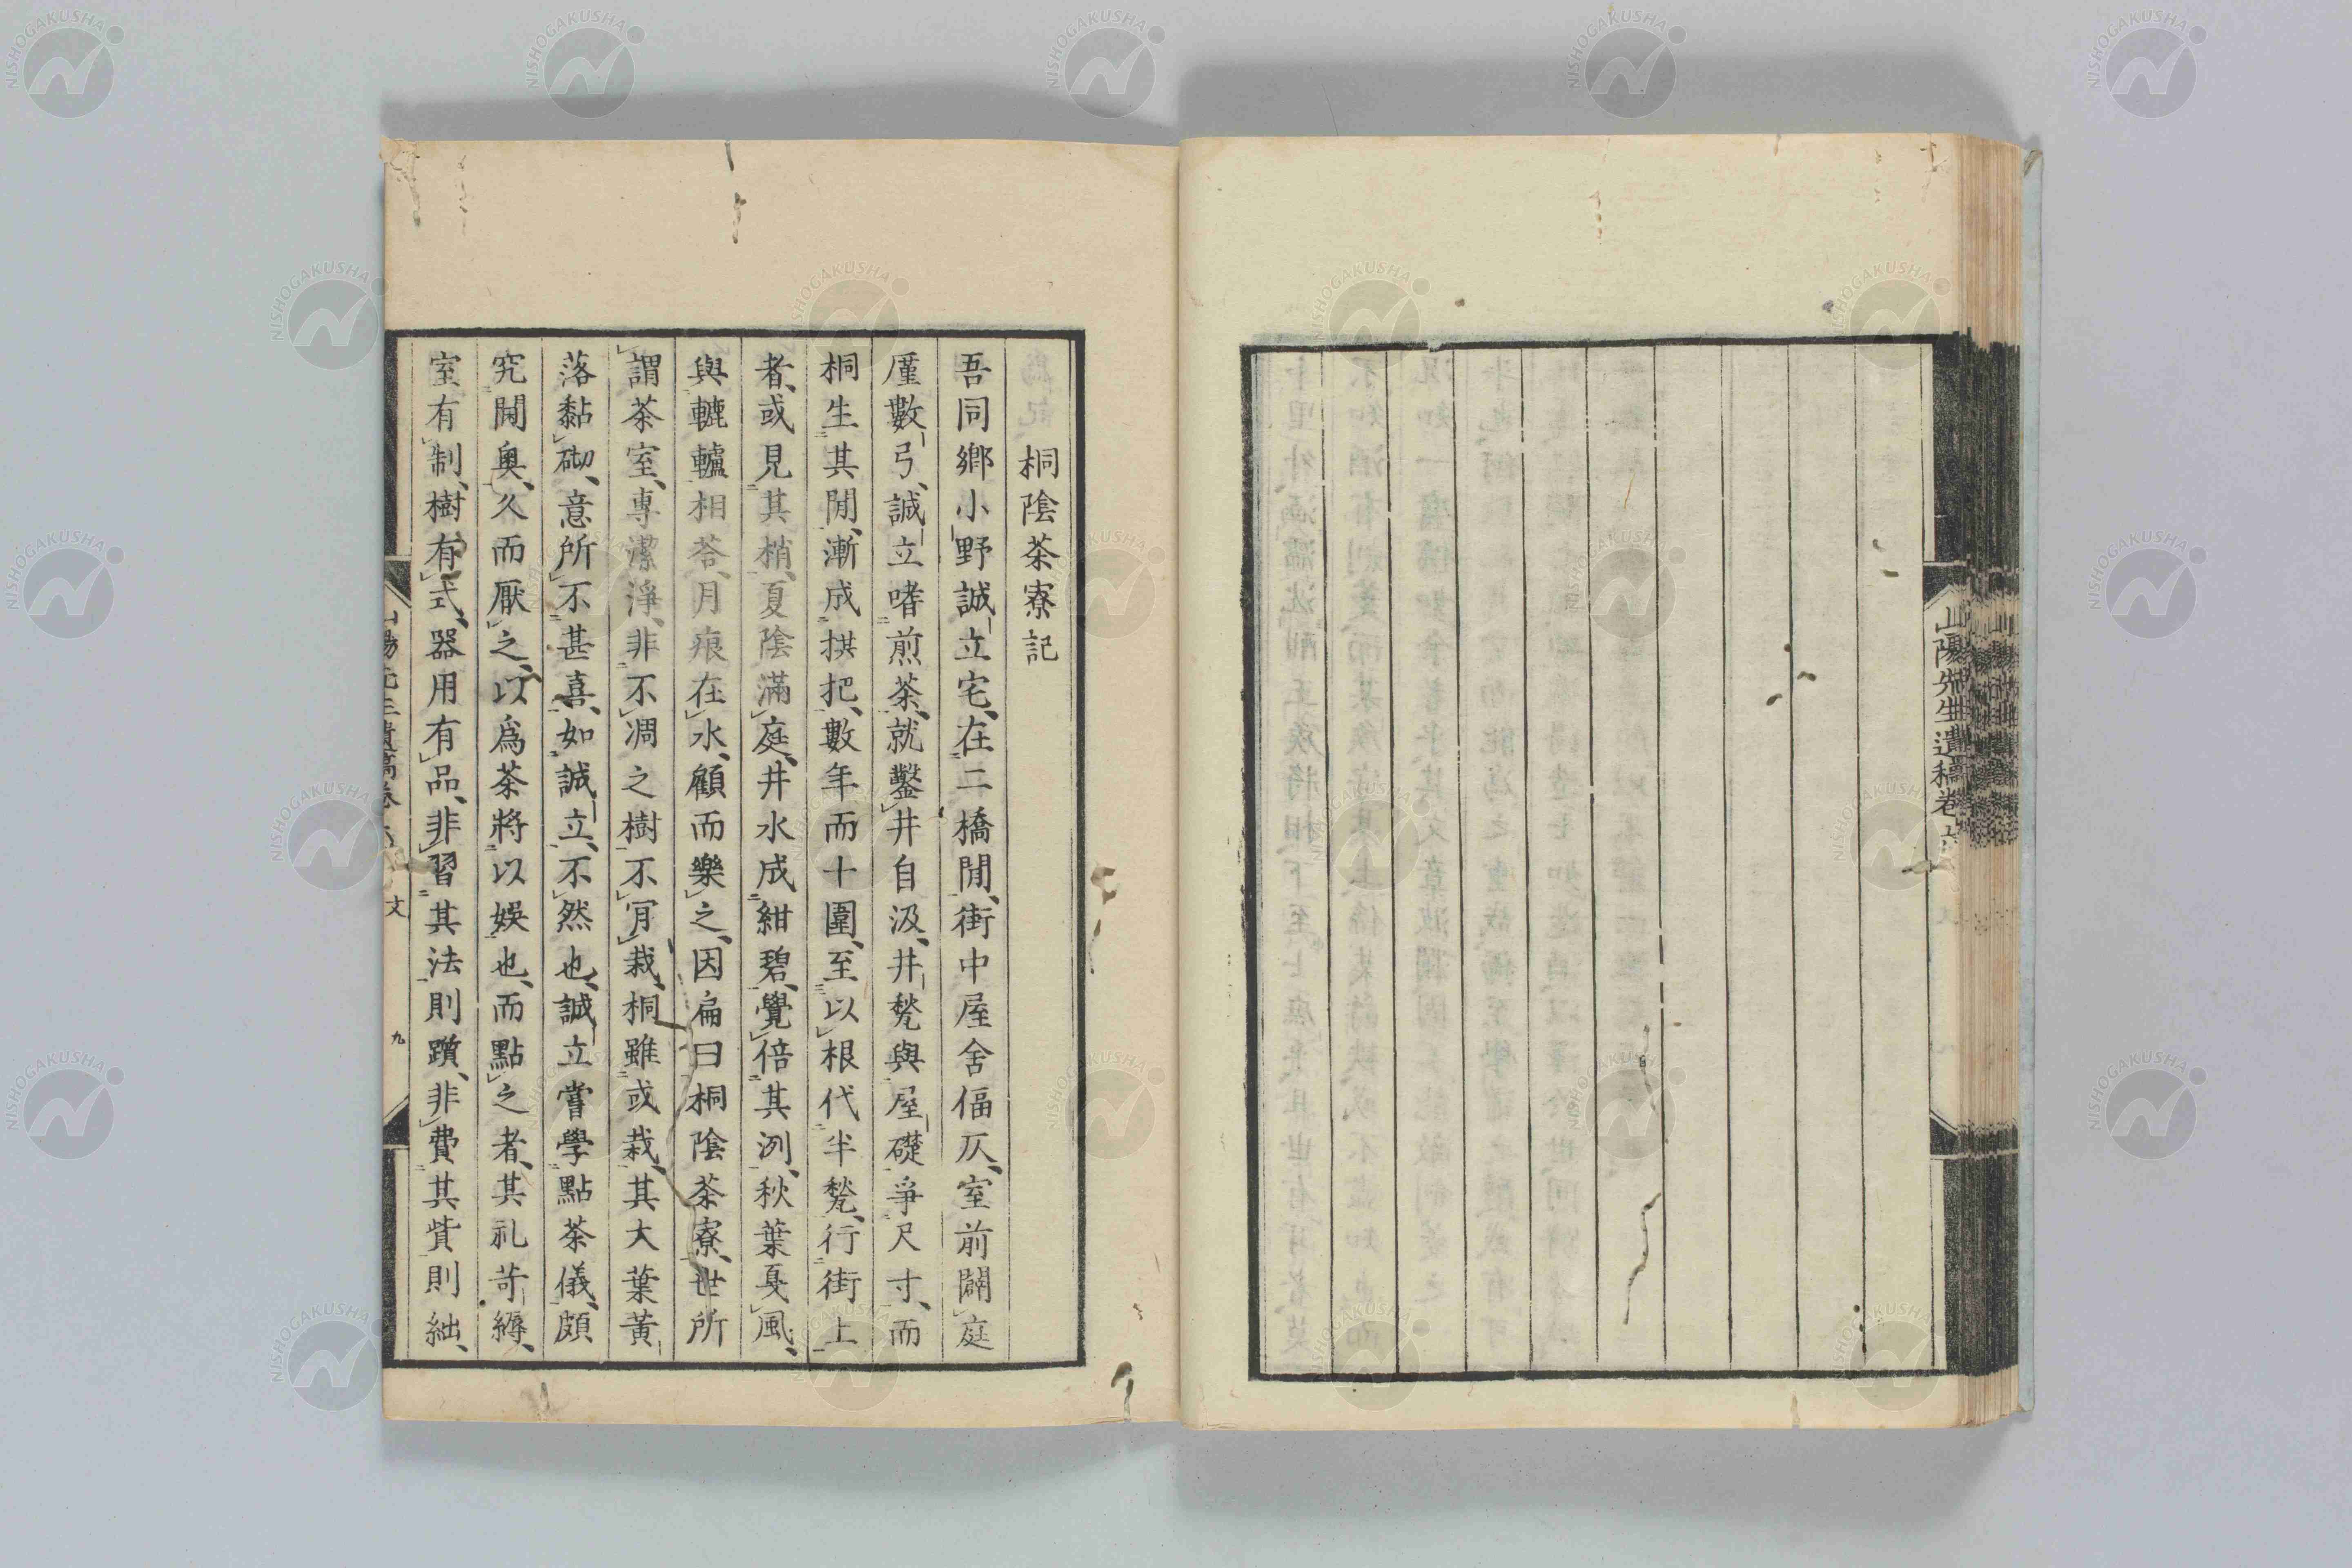 山陽先生遺稿卷六
桐陰茶寮記
吾同鄉小野誠立宅、在二橋閒、街中屋舍偪仄、室前闢庭
廑數弓、誠立嗜煎茶、就鑿井自汲、井甃與屋礎爭尺寸、而
桐生其閒、漸成拱把、數年而十圍、至以根代半甃、行街上
者、或見其梢、夏陰滿庭、井水成紺碧、覺倍其洌、秋葉戞風、
與轆轤相荅、月痕在水、顧而樂之、因扁曰桐陰茶寮、世所
謂茶室、專潔淨、非不凋之樹不肎栽、桐雖或栽、其大葉黃
落黏砌、意所不甚喜、如誠立、不然也、誠立嘗學點茶儀、頗
究閫奧、久而厭之、以爲茶將以娛也、而點之者、其礼苛縟、
室有制、樹有式、器用有品、非習其法則躓、非費其貲則絀、
文
九
NISHOGAKUSHA